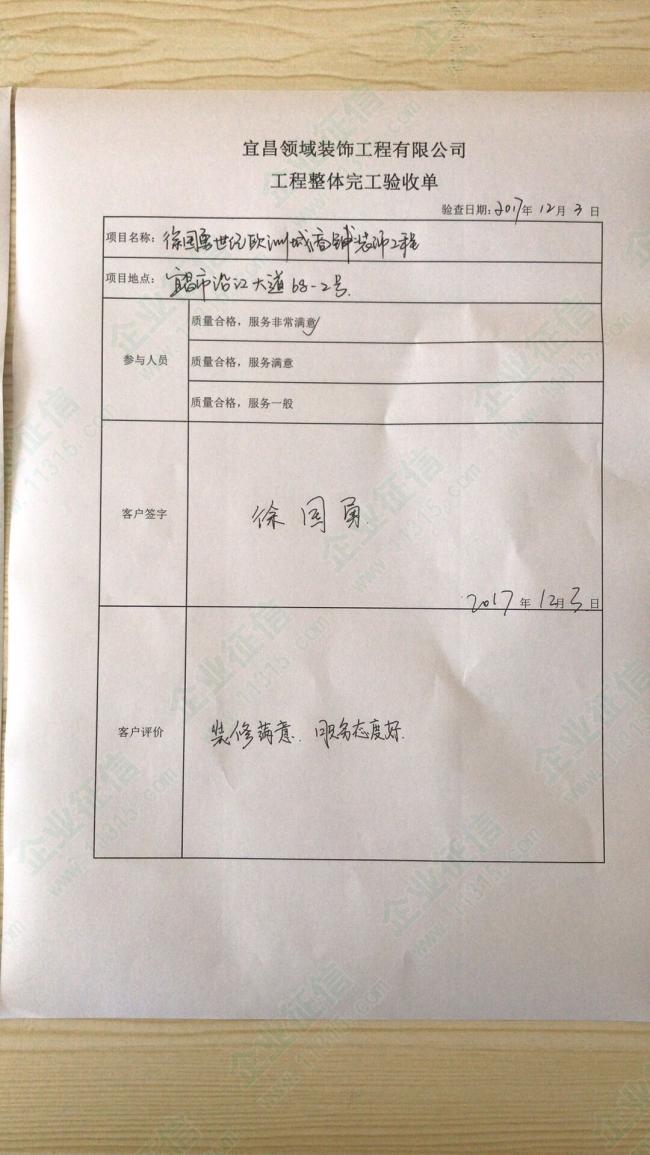 宜昌领域装饰工程有限公司
工程整体完工验收单
验查日期：2017年 12月 3 日
项目名称：徐国勇世纪欧洲城商铺装饰工程
项目地点：宜昌市沿江大道68-2号
参与人员
质量合格，服务非常满意
质量合格，服务满意
质量合格，服务一般
客户签字
徐国勇
2017年12月3日
客户评价
装修满意.服务态度好.
企业征信
www.11315.com